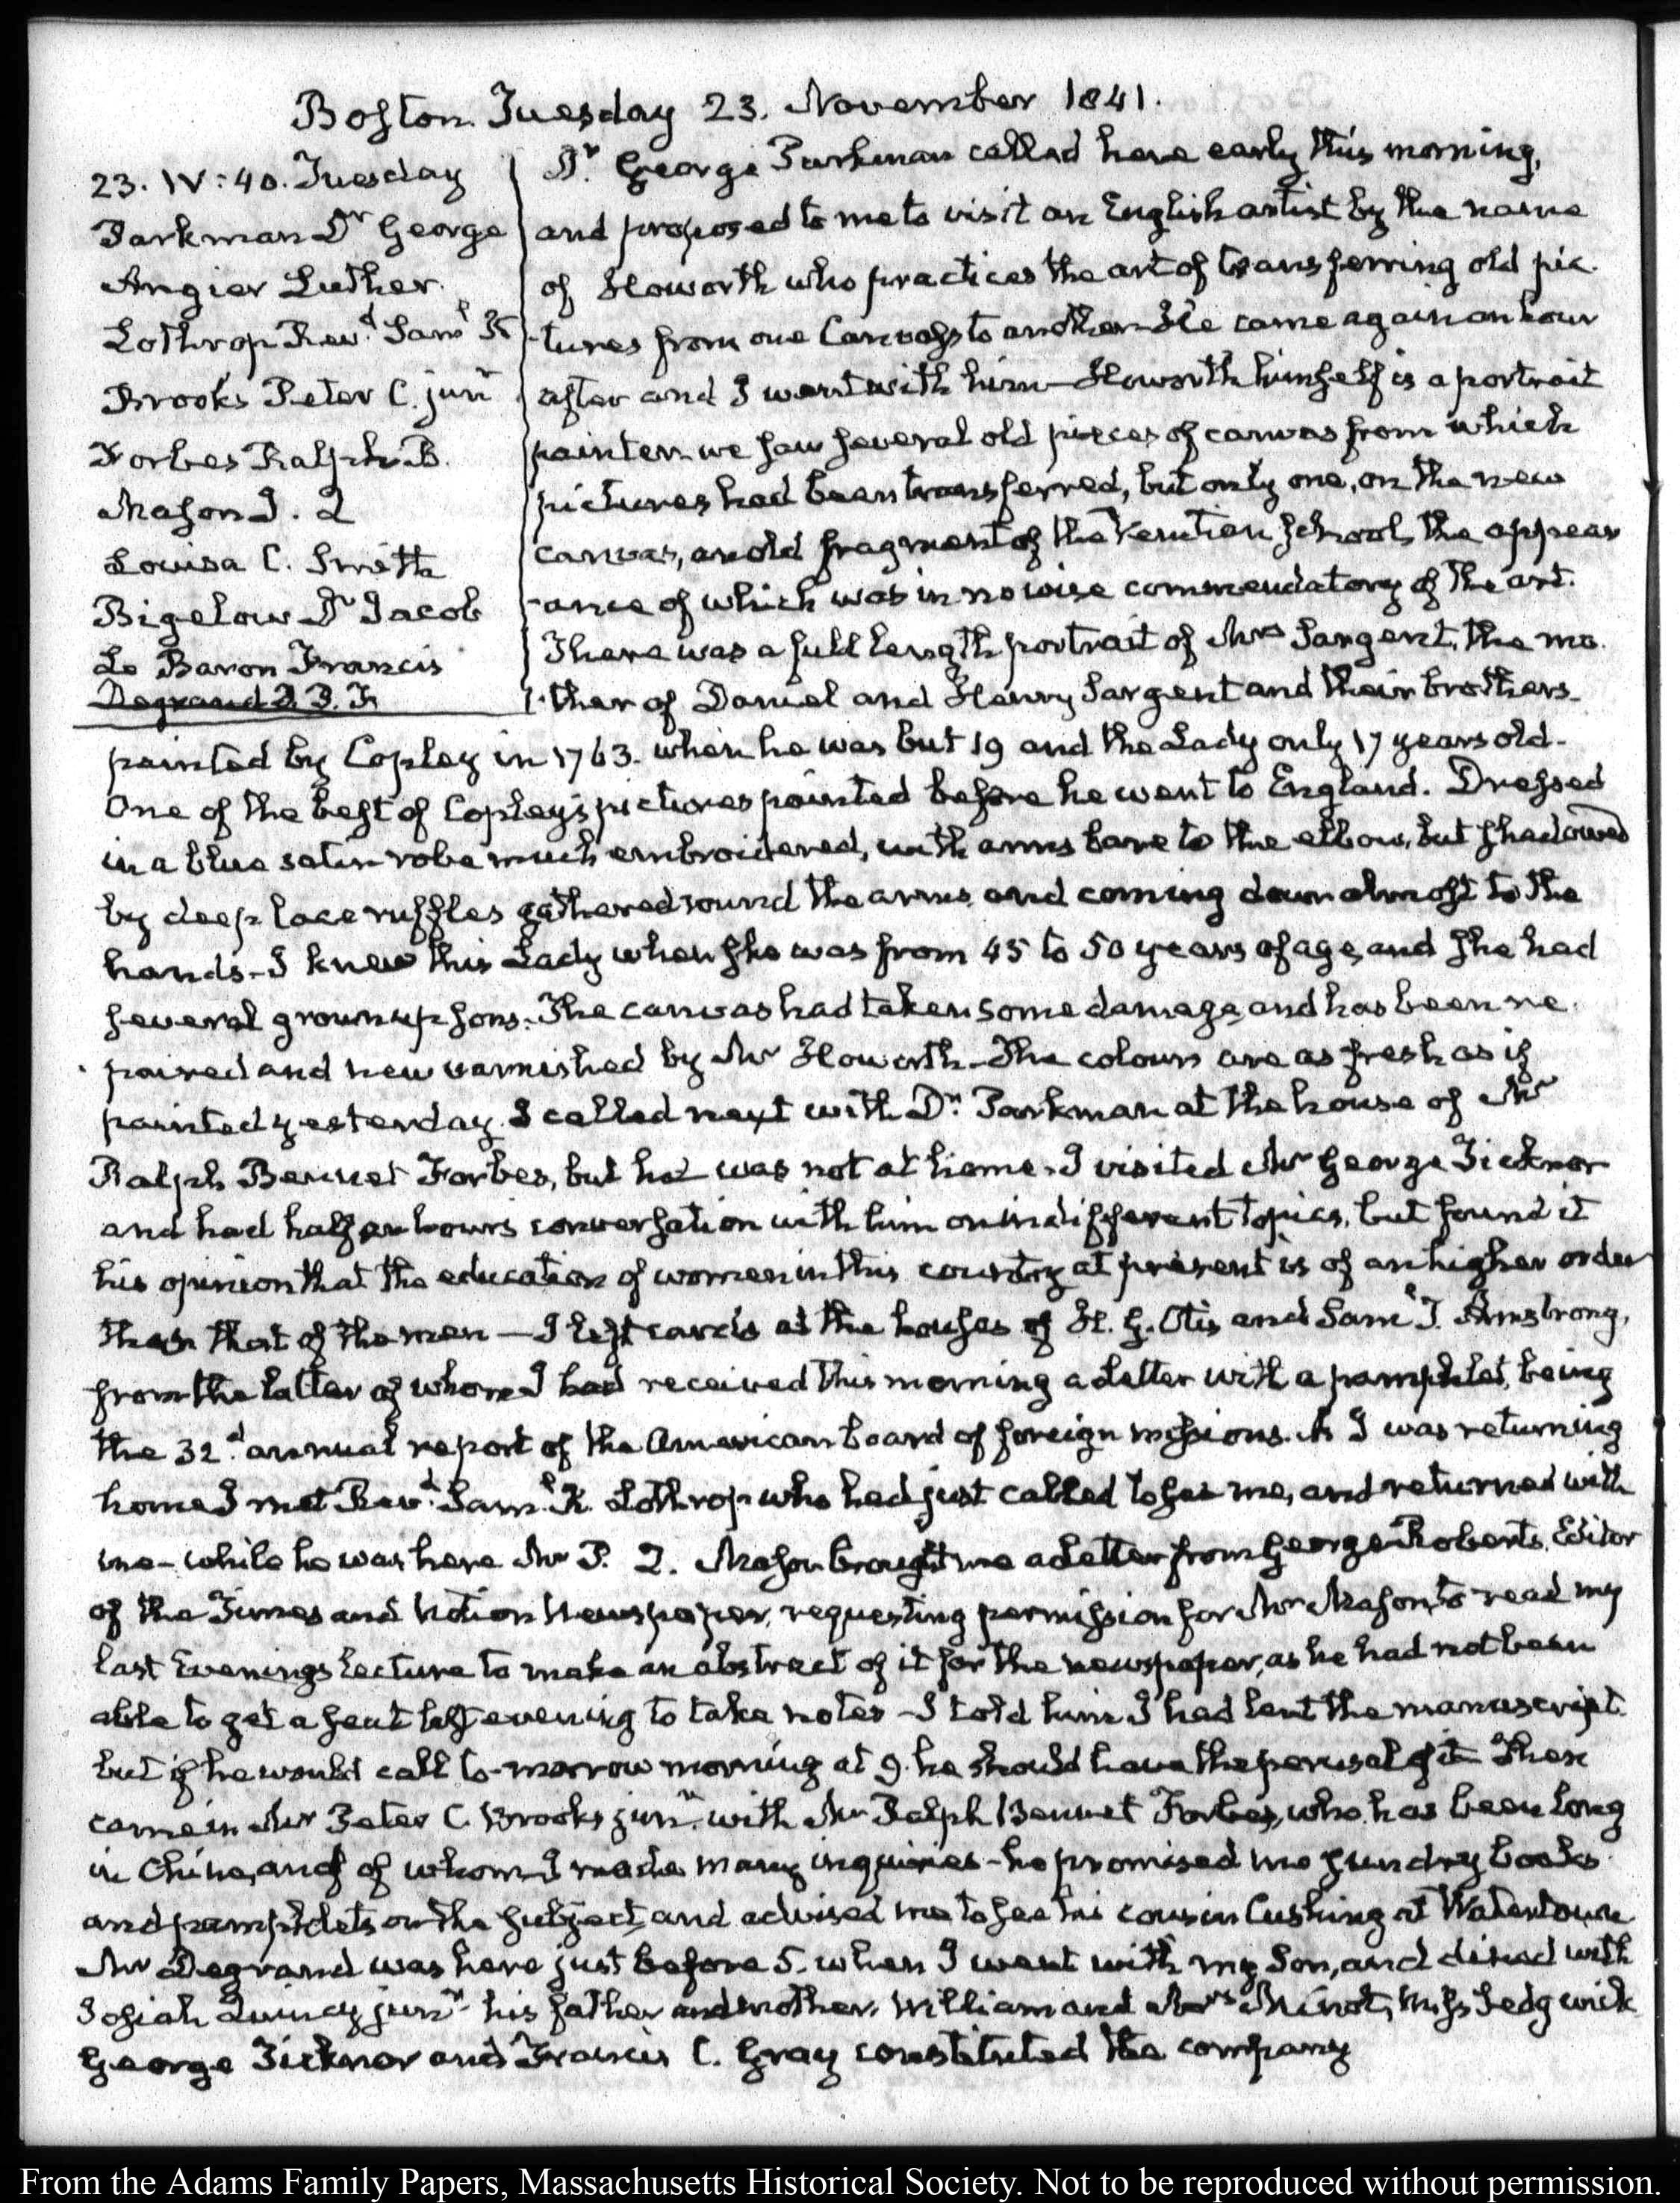 Boston Tuesday 23. November 1841.
23. IV:40. Tuesday
Parkman Dr George
Angier Luther.
Lothrop Revd. Saml K
Brooks Peter C. junr
Forbes Ralph B.
Mason J. 2
Louisa C. Smith
Bigelow Dr Jacob
Le Baron Francis
Degrand P. P. F.
Dr. George Parkman called here early this morning,
and proposed to me to visit an English artist by the name
of Howorth who practices the art of transferring old pic-
tures from one Canvass to another. He came again an hour
after and I went with him—Howorth himself is a portrait
painter. we saw several old pieces of canvas from which
pictures had been transferred, but only one, on the new
canvas, an old fragment of the Venetian School, the appear
-ance of which was in no wise commendatory of the art.
There was a full length portrait of Mrs Sargent, the mo-
-ther of Daniel and Henry Sargent and their brothers-
painted by Copley in 1763. when he was but 19 and the Lady only 17 years old-
One of the best of Copley's pictures painted before he went to England. Dressed
in a blue satin robe much embroidered, with arms bare to the elbow, but shadowed
by deep lace ruffles gathered round the arms, and coming down almost to the
hands-I knew this Lady when she was from 45 to 50 years of age, and she had
several grown up sons. The canvas had taken some damage, and has been re-
paired and new varnished by Mr Howorth-The colours are as fresh as if
painted yesterday. I called next with Dr. Parkman at the house of Mr
Ralph Bennet Forbes, but he was not at home. I visited Mr George Ticknor
and had half an hours conversation with him on indifferent topics, but found it
his opinion that the education of women in this country at present is of an higher order
than that of the men—I left cards at the houses of H. G. Otis and Saml T. Armstrong,
from the latter of whom I had received this morning a Letter with a pamphlet, being
the 32d. annual report of the American board of foreign missions. As I was returning
home I met Revd. Saml. K. Lothrop who had just called to see me, and returned with
me-while he was here Mr P. 2. Mason brought me a Letter from George Roberts, Editor
of the Times and Notion Newspaper, requesting permission for Mr Mason, to read my
last Evenings Lecture to make an abstract of it for the newspaper, as he had not been
able to get a seat last evening to take notes-I told him I had lent the manuscript.
but if he would call to-morrow morning at 9. he should have the perusal of it Then
came in Mr Peter C. Brooks junr. with Mr Ralph Bennet Forbes, who has been long
in China, and of whom I made many inquiries-he promised me sundry books
and pamphlets on the subject, and advised me to see his cousin Cushing at Watertown
Mr Degrand was here just before 5. when I went with my Son, and dined with
Josiah Quincy junr- his father and mother, William and Mrs Minot, Miss Sedgwick
George Ticknor and Francis C. Gray constituted the company
From the Adams Family Papers, Massachusetts Historical Society. Not to be reproduced without permission.